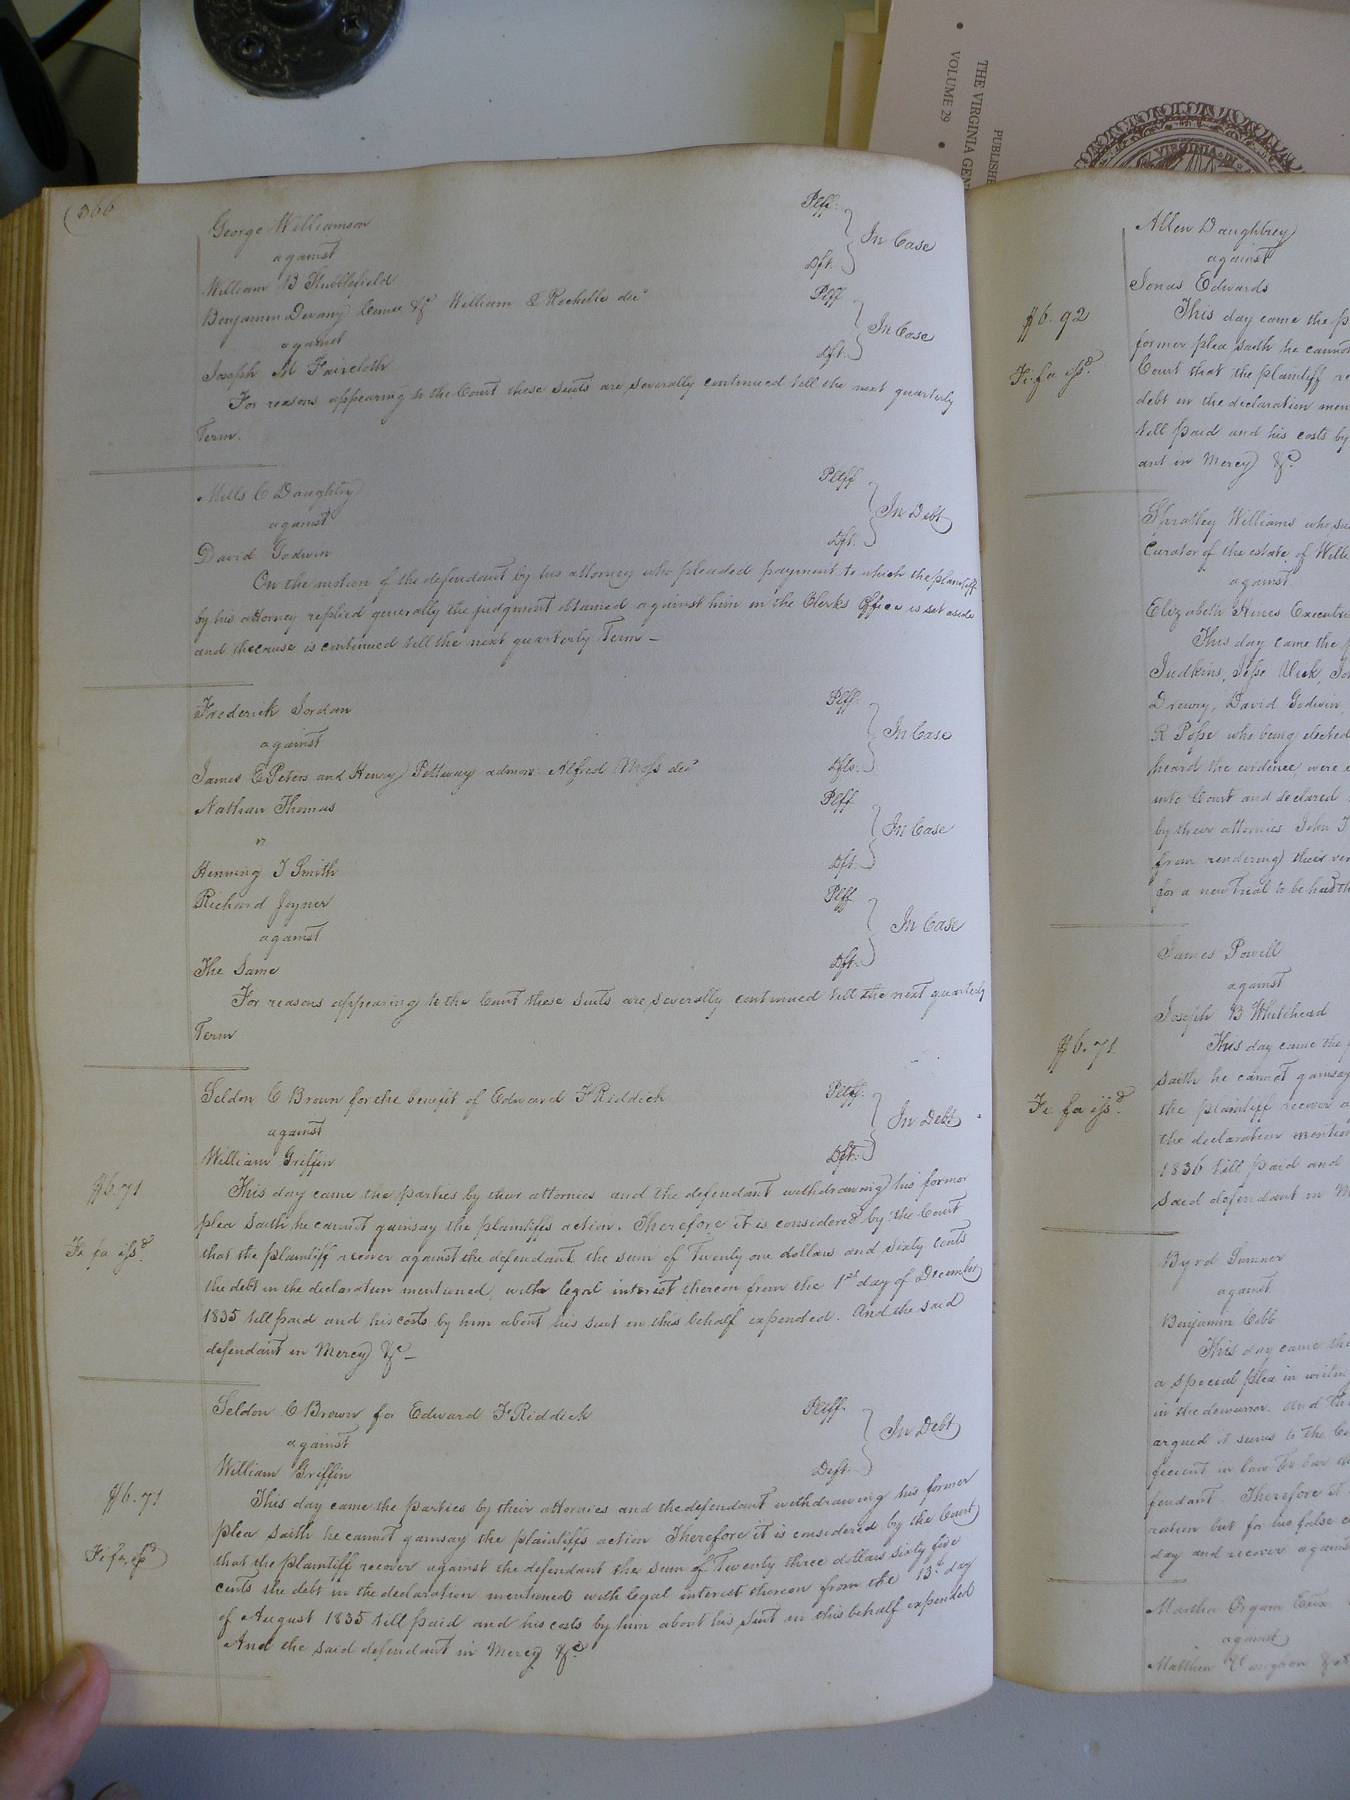 (366
George Williamson Plff.
against In Case
William B Stubblefield Dft.
Benjamin Devany &c William Rochelle decd Plff
against In Case
Joseph M Faircloth Dft.
For reasons appearing to the Court these suits are severally continued till the next quarterly
Term.
Mills C Daughtry Pltff
against In Debt
David Godwin Dft.
On the motion of the defendant by his attorney who pleaded payment to which the plaintiff
by his attorney replied generally the judgment obtained against him in the Clerks Office is set aside
and the cause is continued till the next quarterly Term —
Frederick Jordan Plff.
against In Case
James E Peters and Henry Pettway admors. Alfred Moss decd Dfts.
Nathan Thomas Plff
vs In Case
Henning T Smith Dft.
Richard Joyner Plff
against In Case
The Same Dft.
For reasons appearing to the Court these suits are severally continued till the next quarterly
Term
Seldon C Brown for the benefit of Edward F Riddick Pltff.
against In Debt
William Griffin Dft.
$6.71
This day came the parties by their attornies and the defendant withdrawing his former
plea saith he cannot gainsay the plaintiffs action. Therefore it is considered by the Court
Fi fa issd.
that the plaintiff recover against the defendant the sum of Twenty one dollars and sixty cents
the debt in the declaration mentioned, with legal interest thereon from the 1st day of December
1835 till paid and his costs by him about his suit in this behalf expended. And the said
defendant in Mercy &c —
Seldon C Brown for Edward F Riddick Pltff.
against In Debt
William Griffin Deft.
$6.71
This day came the parties by their attornies and the defendant withdrawing his former
plea saith he cannot gainsay the plaintiffs action Therefore it is considered by the Court
Fi fa issd
that the plaintiff recover against the defendant the sum of Twenty three dollars sixty five
cents the debt in the declaration mentioned with legal interest thereon from the 13th day
of August 1835 till paid and his costs by him about his suit in this behalf expended
And the said defendant in Mercy &c
THE VIRGINIA GEN
VOLUME 29
PUBLISHE
VIRGINIA
Allen Daughtrey
against
Jonas Edwards
$6.92
This day came the p
former plea saith he cannot
Fi. fa issd.
Court that the plaintiff re
debt in the declaration men
till paid and his costs by
ant in Mercy &c.
Spratley Williams who su
Curator of the estate of Wille
against
Elizabeth Hines Executri
This day came the p
Judkins, Jesse Vick, Jo
Drewry, David Godwin,
R Pope who being elected
heard the evidence, were
into Court and declared
by their attornies John T
from rendering their ver
for a new Trial to be had th
James Powell
against
Joseph B Whitehead
$6.71
This day came the
saith he cannot gainsay
Fi fa issd.
the plaintiff recover a
the declaration mention
1836 till paid and
said defendant in M
Byrd Sumner
against
Benjamin Cobb
This day came the
a special plea in writin
in the demurrer. And th
argued it seems to the Co
ficient in law to bar th
fendant Therefore it
ration but for his false c
day and recover against
Martha Organ Exix
against
Matthew